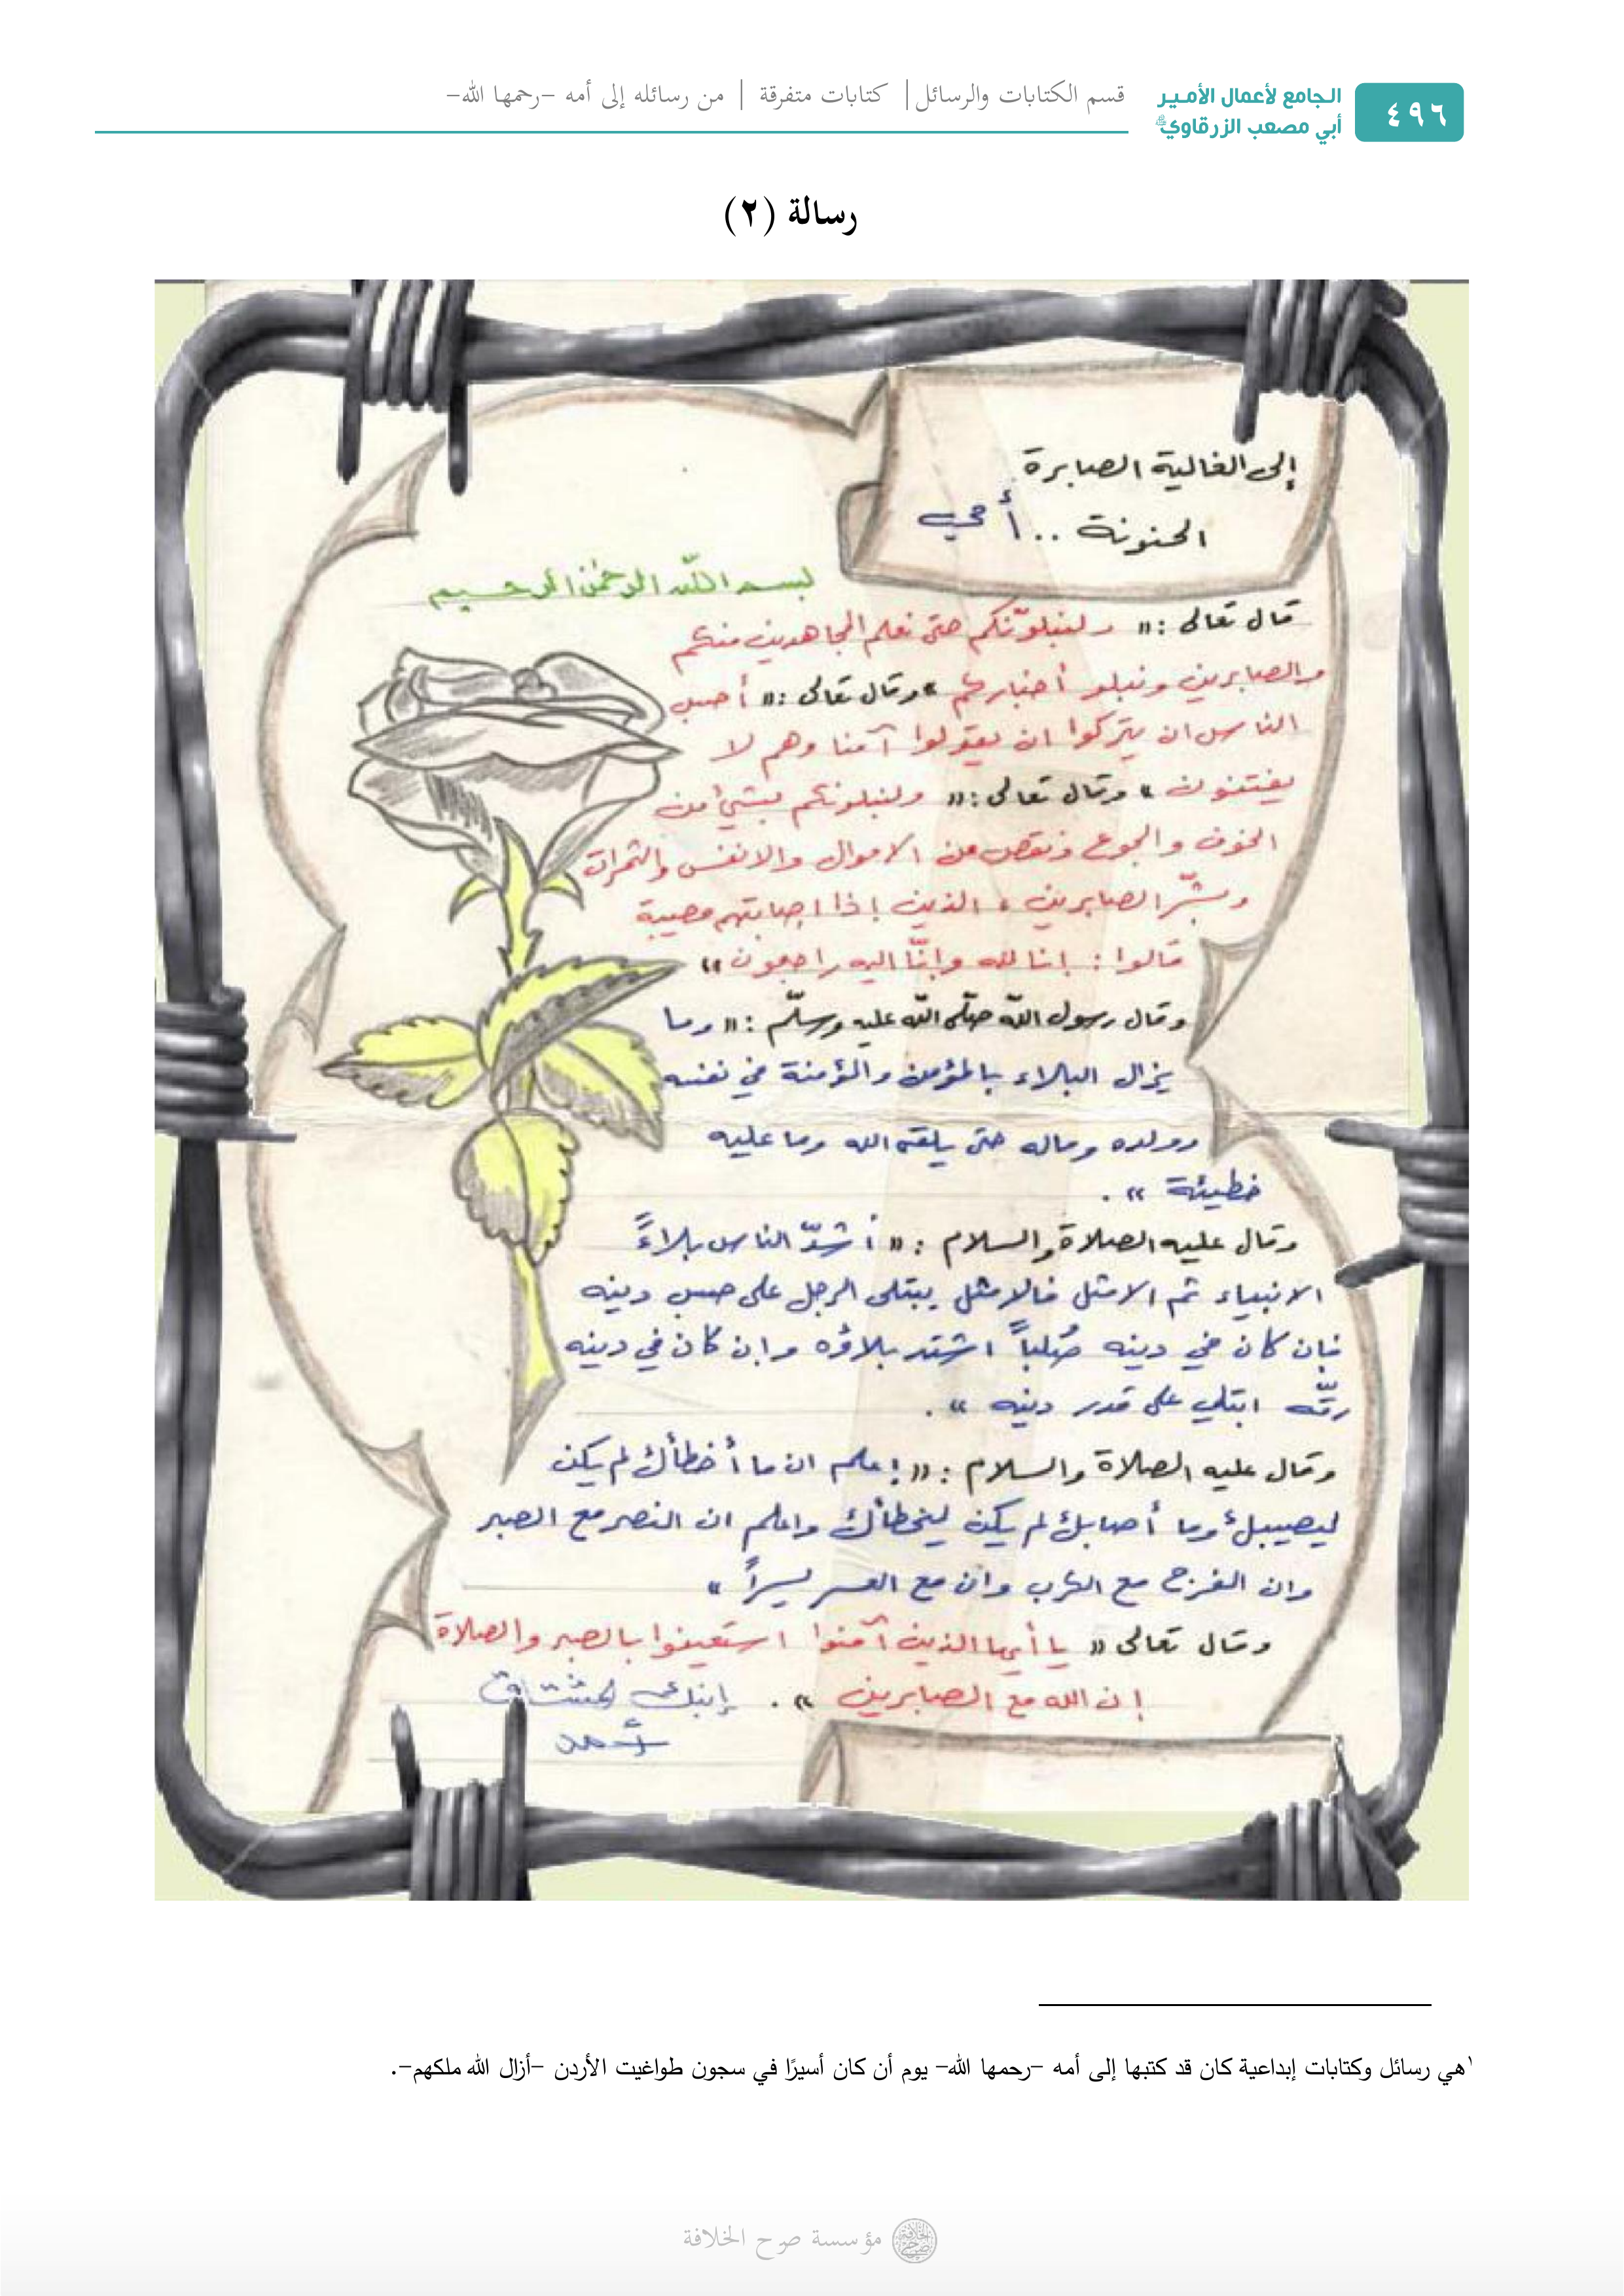 ٤٩٦
الجامع لأعمال الأمير
أبي مصعب الزرقاوي
قسم الكتابات والرسائل | كتابات متفرقة | من رسائله إلى أمه -رحمها الله-
رسالة (٢)
إلى الغالية الصابرة
الحنونة .. أمي
بسم الله الرحمن الرحيم
قال تعالى : « ولنبلونّكم حتى نعلم المجاهدين منكم
والصابرين ونبلو أخباركم » وقال تعالى : « أحسب
الناس ان يتركوا ان يقولوا آمنا وهم لا
يفتنون » وقال تعالى : « ولنبلونكم بشيء من
الخوف والجوع ونقص من الاموال والانفس والثمرات
وبشّر الصابرين ، الذين إذا اصابتهم مصيبة
قالوا : إنا لله وإنّا إليه راجعون »
وقال رسول اللّه صلّى اللّه عليه وسلّم : « وما
يزال البلاء بالمؤمن والمؤمنة في نفسه
وولده وماله حتى يلقى الله وما عليه
خطيئة » .
وقال عليه الصلاة والسلام : « أشدّ الناس بلاءً
الانبياء ثم الامثل فالامثل يبتلى الرجل على حسب دينه
فإن كان في دينه صُلباً اشتد بلاؤه وإن كان في دينه
رقّه ابتلي على قدر دينه » .
وقال عليه الصلاة والسلام : « إعلم ان ما أخطأك لم يكن
ليصيبك وما أصابك لم يكن ليخطأك واعلم ان النصر مع الصبر
وان الفرج مع الكرب وان مع العسر يسراً »
وقال تعالى « يا أيها الذين آمنوا استعينوا بالصبر والصلاة
إن الله مع الصابرين » . إبنك المشتاق
أحمد
١هي رسائل وكتابات إبداعية كان قد كتبها إلى أمه -رحمها الله- يوم أن كان أسيرًا في سجون طواغيت الأردن -أزال الله ملكهم-.
مؤسسة صرح الخلافة